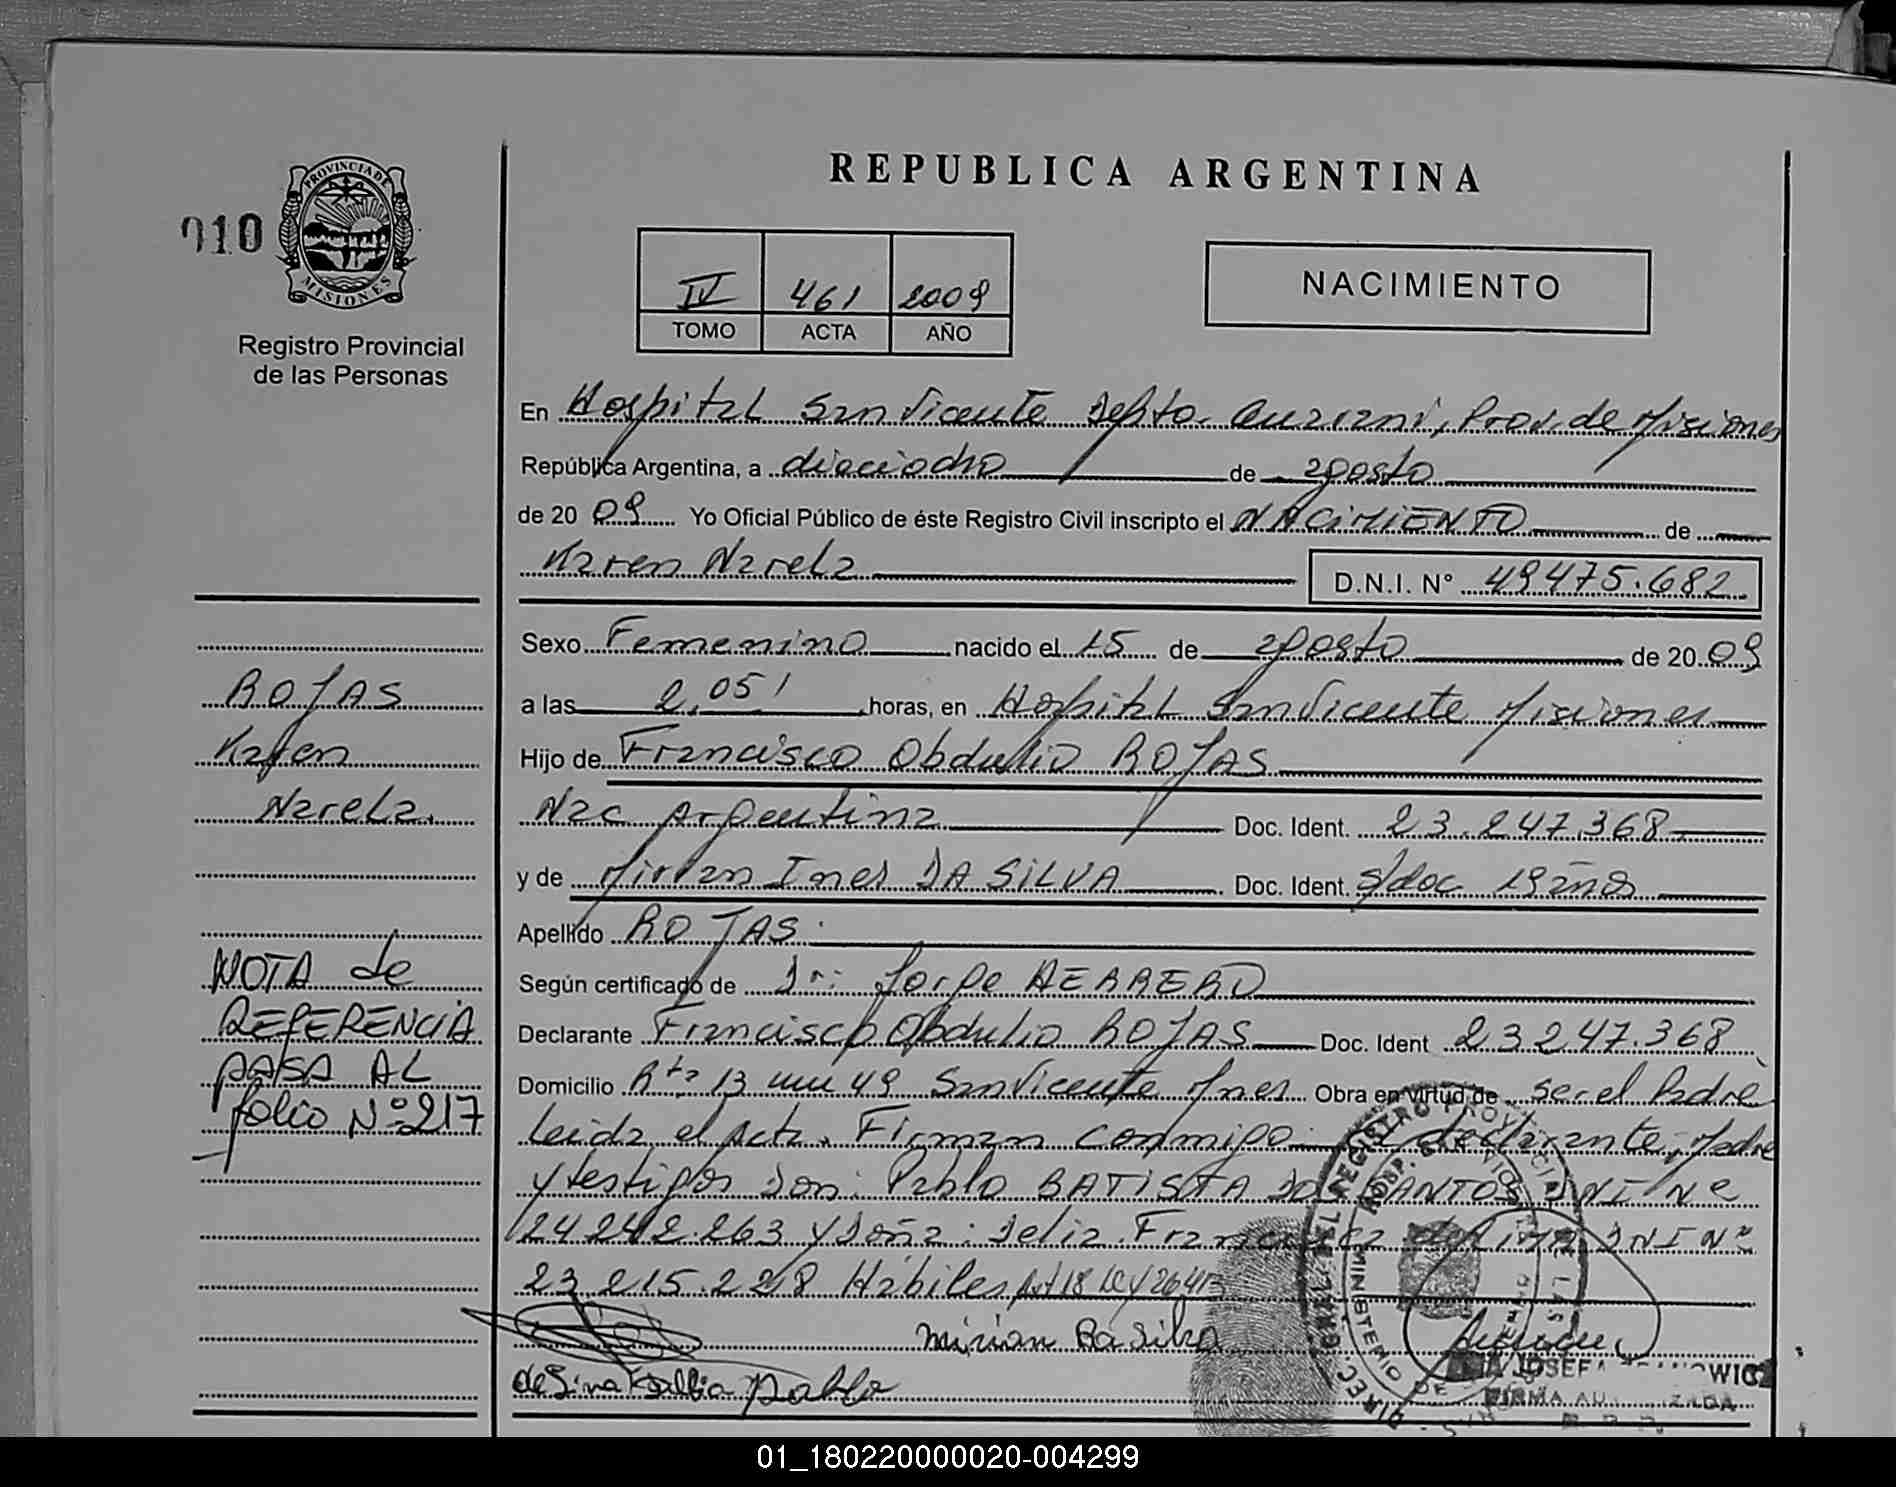 REPUBLICA ARGENTINA
010
PROVINCIA DE
MISIONES
Registro Provincial
de las Personas
IV 461 2009
TOMO ACTA AÑO
NACIMIENTO
En Hospital San Vicente Depto. Guarani, Prov. de Misiones
República Argentina, a dieciocho de agosto
de 20 09 Yo Oficial Público de éste Registro Civil inscripto el NACIMIENTO de
Karen Narela D.N.I. N° 49475.682
Sexo Femenino nacido el 15 de agosto de 20 09
a las 2,05' horas, en Hospital San Vicente Misiones
Hijo de Francisco Obdulio ROJAS
Nac Argentina Doc. Ident. 23.247.368
y de Mirian Ines DA SILVA Doc. Ident. s/doc 19 años
Apellido ROJAS
Según certificado de Dr: Jorge HERRERO
Declarante Francisco Obdulio ROJAS Doc. Ident 23247.368
Domicilio Rta 13 km 49 San Vicente Mnes Obra en virtud de ser el Padre
Leida el Acta. Firman conmigo declarante, Madre
y testigos Don: Pablo BATISTA DOS SANTOS DNI Nº
24242.263 y Doña: Delia de Lima DNI Nº
23.215.228 Hábiles Art 18 Ley 26413
ROJAS
Karen
Narela.
NOTA de
REFERENCIA
PASA AL
folio Nº 217
Pablo
JOSEFA
FIRMA
01_180220000020-004299